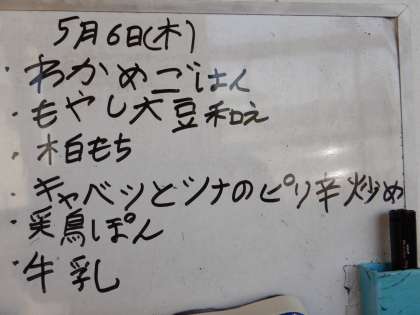 5月6日(木)
・わかめごはん
・もやし大豆和え
・柏もち
・キャベツとツナのピリ辛炒め
・実鳥ぽん
・牛乳